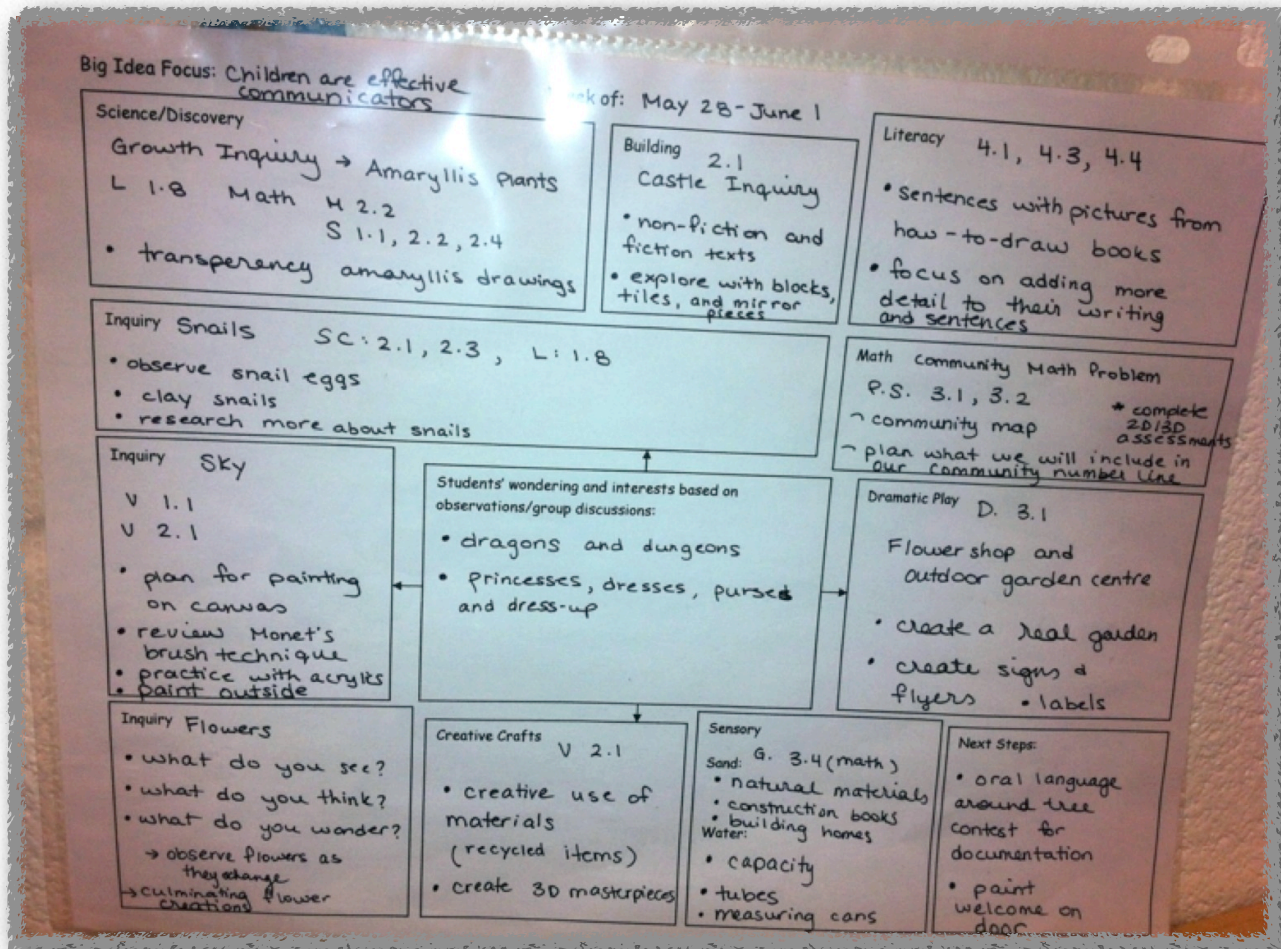 Big Idea Focus: Children are effective
communicators
of: May 28-June 1
Science/Discovery
Growth Inquiry → Amaryllis Plants
L 1.8 Math M 2.2
S 1.1, 2.2, 2.4
• transperency amaryllis drawings
Building 2.1
Castle Inquiry
• non-fiction and
fiction texts
• explore with blocks,
tiles, and mirror
pieces
Literacy 4.1, 4.3, 4.4
• sentences with pictures from
how-to-draw books
• focus on adding more
detail to their writing
and sentences
Inquiry Snails SC: 2.1, 2.3, L: 1.8
• observe snail eggs
• clay snails
• research more about snails
Math Community Math Problem
P.S. 3.1, 3.2
* complete
2D/3D
assessments
¬ community map
¬ plan what we will include in
our community number line
Inquiry Sky
V 1.1
V 2.1
• plan for painting
on canvas
• review Monet's
brush technique
• practice with acrylics
• paint outside
Students' wondering and interests based on
observations/group discussions:
• dragons and dungeons
• princesses, dresses, purses
and dress-up
Dramatic Play D. 3.1
Flower shop and
outdoor garden centre
• create a real garden
• create signs &
flyers • labels
Inquiry Flowers
• what do you see?
• what do you think?
• what do you wonder?
→ observe flowers as
they change
→ culminating flower
creations
Creative Crafts V 2.1
• creative use of
materials
(recycled items)
• create 3D masterpieces
Sensory
Sand: G. 3.4 (math)
• natural materials
• construction books
• building homes
Water:
• capacity
• tubes
• measuring cans
Next Steps:
• oral language
around tree
contest for
documentation
• paint
welcome on
door